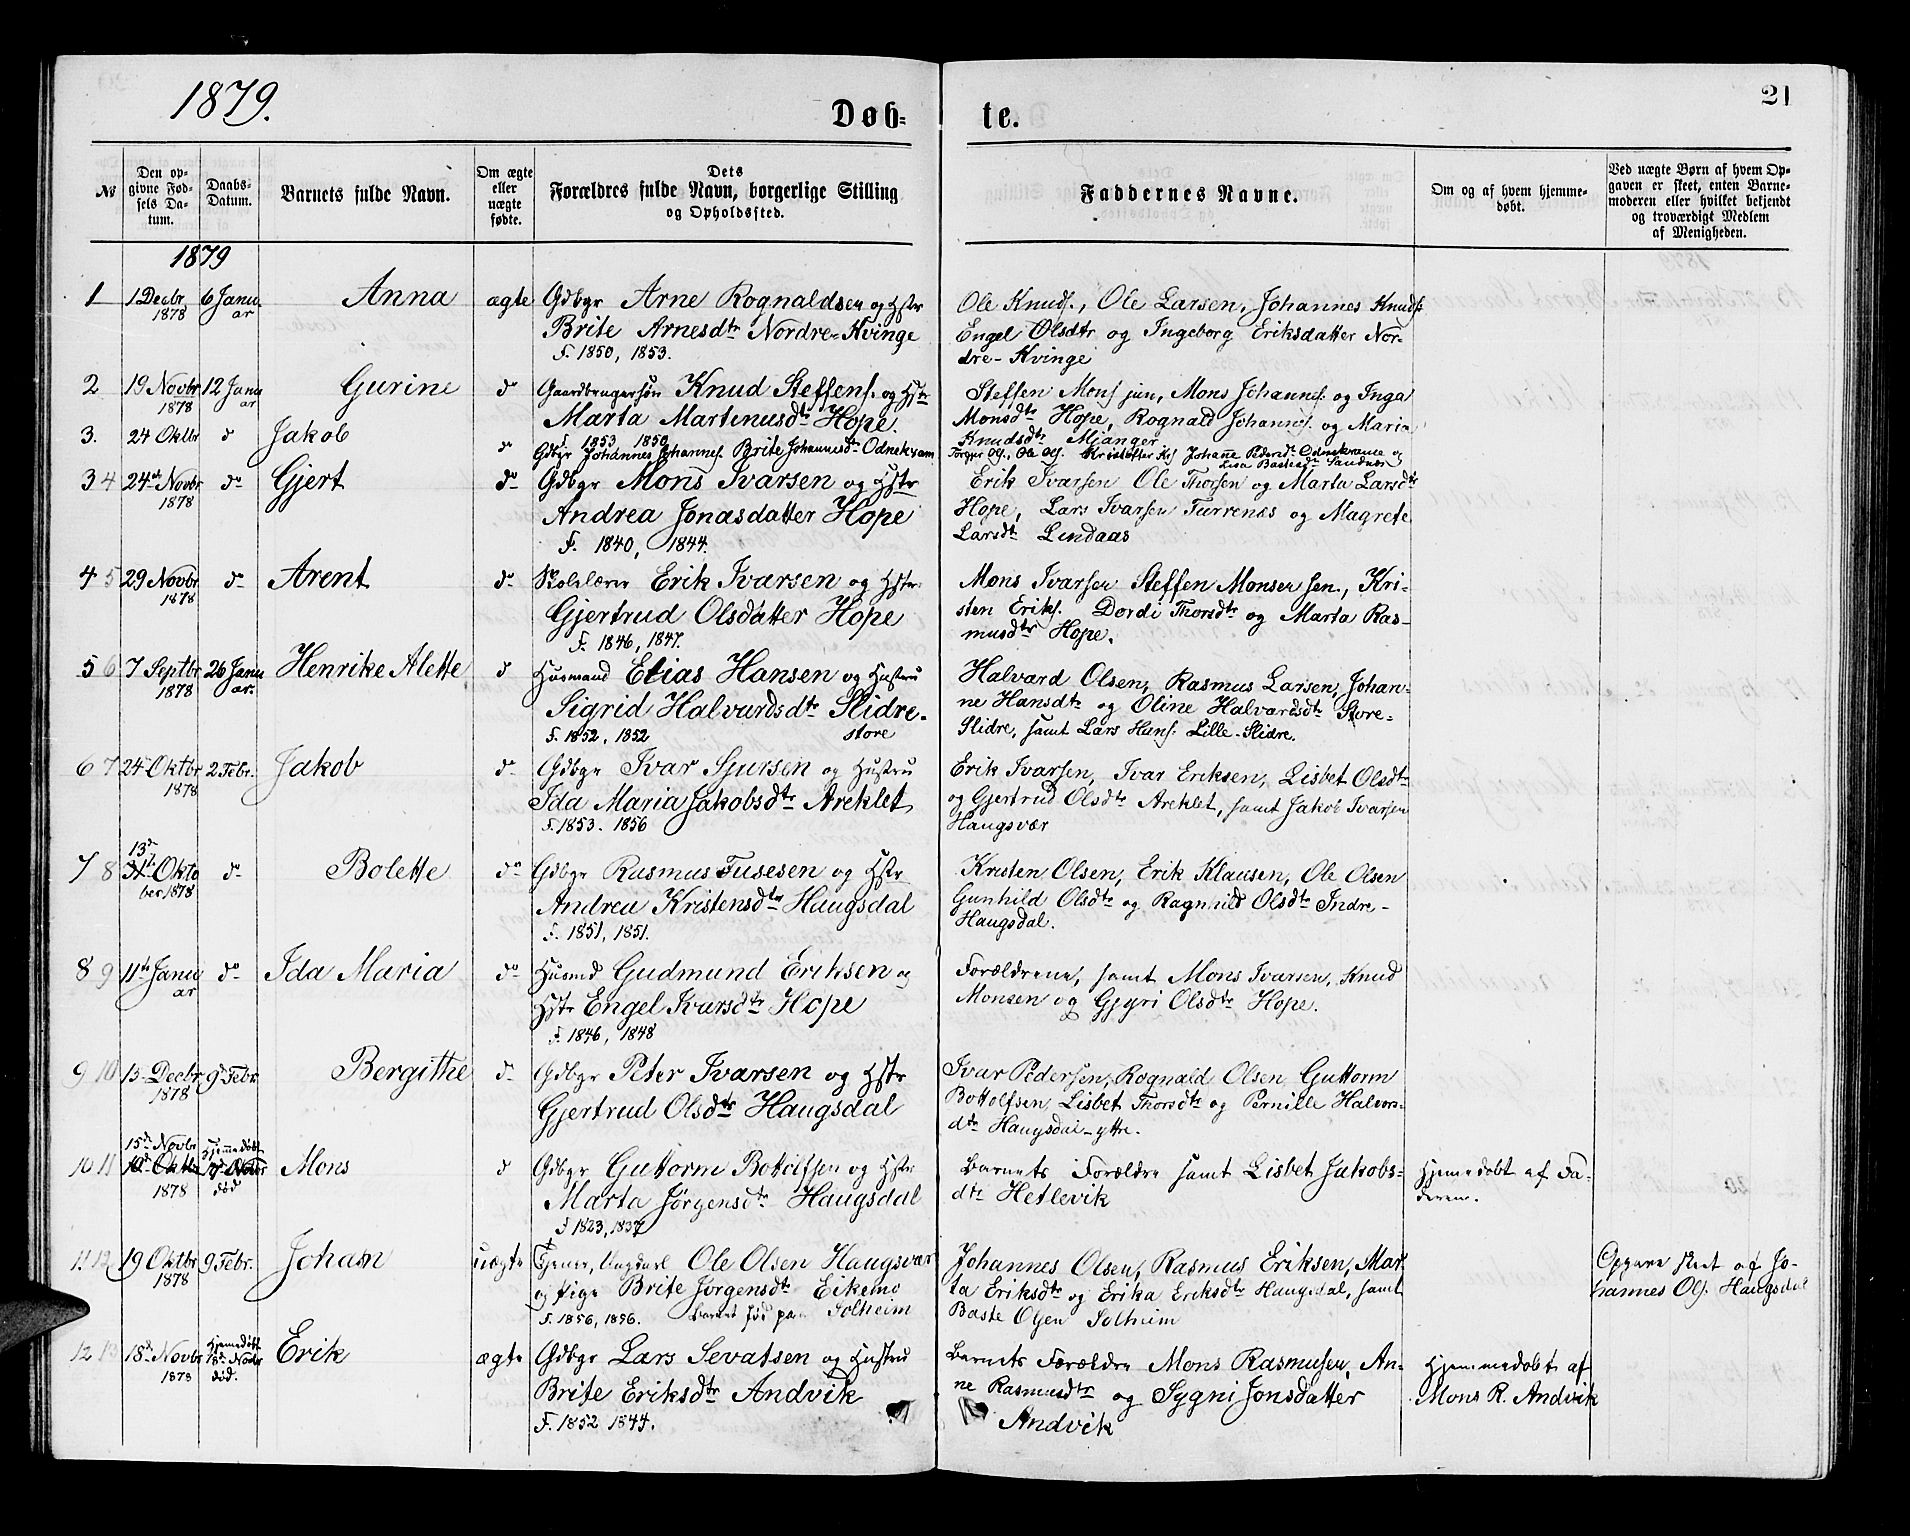 1879.
Døb=
te.
21
№
Den op-
givne Fød-
sels Da-
tum.
Daabs-
Datum.
Barnets fulde Navn.
Om ægte
eller
uægte
fødte.
Dets
Forældres fulde Navn, borgerlige Stilling
og Opholdssted.
Faddernes Navne.
Om og af hvem hjemme-
døbt.
Ved uægte Børn af hvem Op-
gaven er skeet, enten Barne-
moderen eller hvilket bekjendt
og troværdigt Medlem
af Menigheden.
1879
1 1 Decbr 6 Janu Anna ægte Gdbgr Arne Rognaldsen og Hstr Ole Knuds., Ole Larsen, Johannes Knuds.
1878 ar Brite Arnesdtr Nordre-Kvinge Engel Olsdtr og Ingeborg Eriksdatter Nor-
F. 1850, 1853. dre-Kvinge
2 19 Novbr 12 Janu Gurine do Gaardbrugersøn Knud Steffens. og Hstr Steffen Mons. jun, Mons Johannes. og Inga
1878 ar Marta Martinusdtr Hope. Monsdtr Hope, Rognald Johannes. og Maria
F. 1853 1850 Knudsdtr Mjanger
3. 24 Oktbr do Jakob do Gdbgr Johannes Johannes. Brite Johannesdtr Odnekvam Torger Ols., Ole Ols. Kristoffer Johanne Pedersdt Odnekvame og
Lisa Bastesdtr Sandnes
3 4 24de Novbr do Gjert do Gdbgr Mons Ivarsen og Hstr Erik Ivarsen Ole Thorsen og Marta Larsdtr
1878 Andrea Jonasdatter Hope Hope, Lars Ivarsen Turrenæs og Magrete
F. 1840, 1844. Larsdtr Lindaas
4 5 29 Novbr do Arent do Skolelærer Erik Ivarsen og Hstr Mons Ivarsen Steffen Monsen sen., Kri-
1878 Gjertrud Olsdatter Hope sten Eriks. Dordi Thorsdtr og Marta Ras-
F. 1846, 1847. musdtr Hope.
5 6 7 Septbr 26 Janu Henrike Alette do Husmand Elias Hansen og Hustru Halvard Olsen, Rasmus Larsen, Johan-
1878 ar. Sigrid Halvardsdtr Slidre. ne Hansdtr og Oline Halvardsdtr Store-
F. 1852, 1852 store Slidre, samt Lars Hans. Lille-Slidre.
6 7 24 Oktbr 2 Febr. Jakob do Gdbgr Ivar Sjursen og Hustru Erik Ivarsen, Ivar Eriksen, Lisbet Olsdtr
1878 Ida Maria Jakobsdtr Areklet og Gjertrud Olsdtr Areklet, samt Jakob Ivarsen
F. 1853. 1856 Haugsvær
13de
7 8 31te Okto do Bolette do Gdbgr Rasmus Fusesen og Hstr Kristen Olsen, Erik Klausen, Ole Olsen
ber 1878 Andrea Kristensdtr Haugsdal Gunhild Olsdtr og Ragnhild Olsdtr Indre-
F. 1851, 1851. Haugsdal.
8 9 11te Janu do Ida Maria do Husmd Gudmund Eriksen og Forældrene, samt Mons Ivarsen, Knud
ar Hstr Engel Ivarsdtr Hope Monsen og Gjyri Olsdtr Hope.
F. 1846, 1848
9 10 13 Decbr 9de Febr. Bergithe do Gdbgr Peter Ivarsen og Hstr Ivar Pedersen, Rognald Olsen, Guttorm
1878 Gjertrud Olsdtr Haugsdal Bottolfsen, Lisbet Thorsdtr og Pernille Halvors-
dtr Haugsdal-yttre.
15de Novbr Hjemmedøbt
10 11 10de Oktbr Mons do Gdbgr Guttorm Bottolfsen og Hstr Barnets Forældre samt Lisbet Jakobs- Hjemmedøbt af Fa-
1878 død Marta Jørgensdtr Haugsdal dtr Hetlevik deren.
F 1823, 1837
11. 12 19 Oktbr 9 Febr. Johan uægte Tjener, Ungkarl Ole Olsen Haugsvær Johannes Olsen, Rasmus Eriksen, Mar Opgave skeet af Jo-
1878 og Pige Brite Jørgensdtr Eikemo ta Eriksdtr og Erika Eriksdtr Haugsdal, samt hannes Ols. Haugsdal
F. 1856, 1856. Barnet fød paa Solheim Baste Olsen Solheim
12 13 18de Novbr Hjemmedøbt Erik ægte Gdbgr Lars Sevatsen og Hustru Barnets Forældre Mons Rasmusen, An- Hjemmedøbt af
1878 18de Novbr død. Brite Eriksdtr Andvik ne Rasmusdtr og Sygni Jonsdatter Mons R. Andvik
F. 1852 1844. Andvik